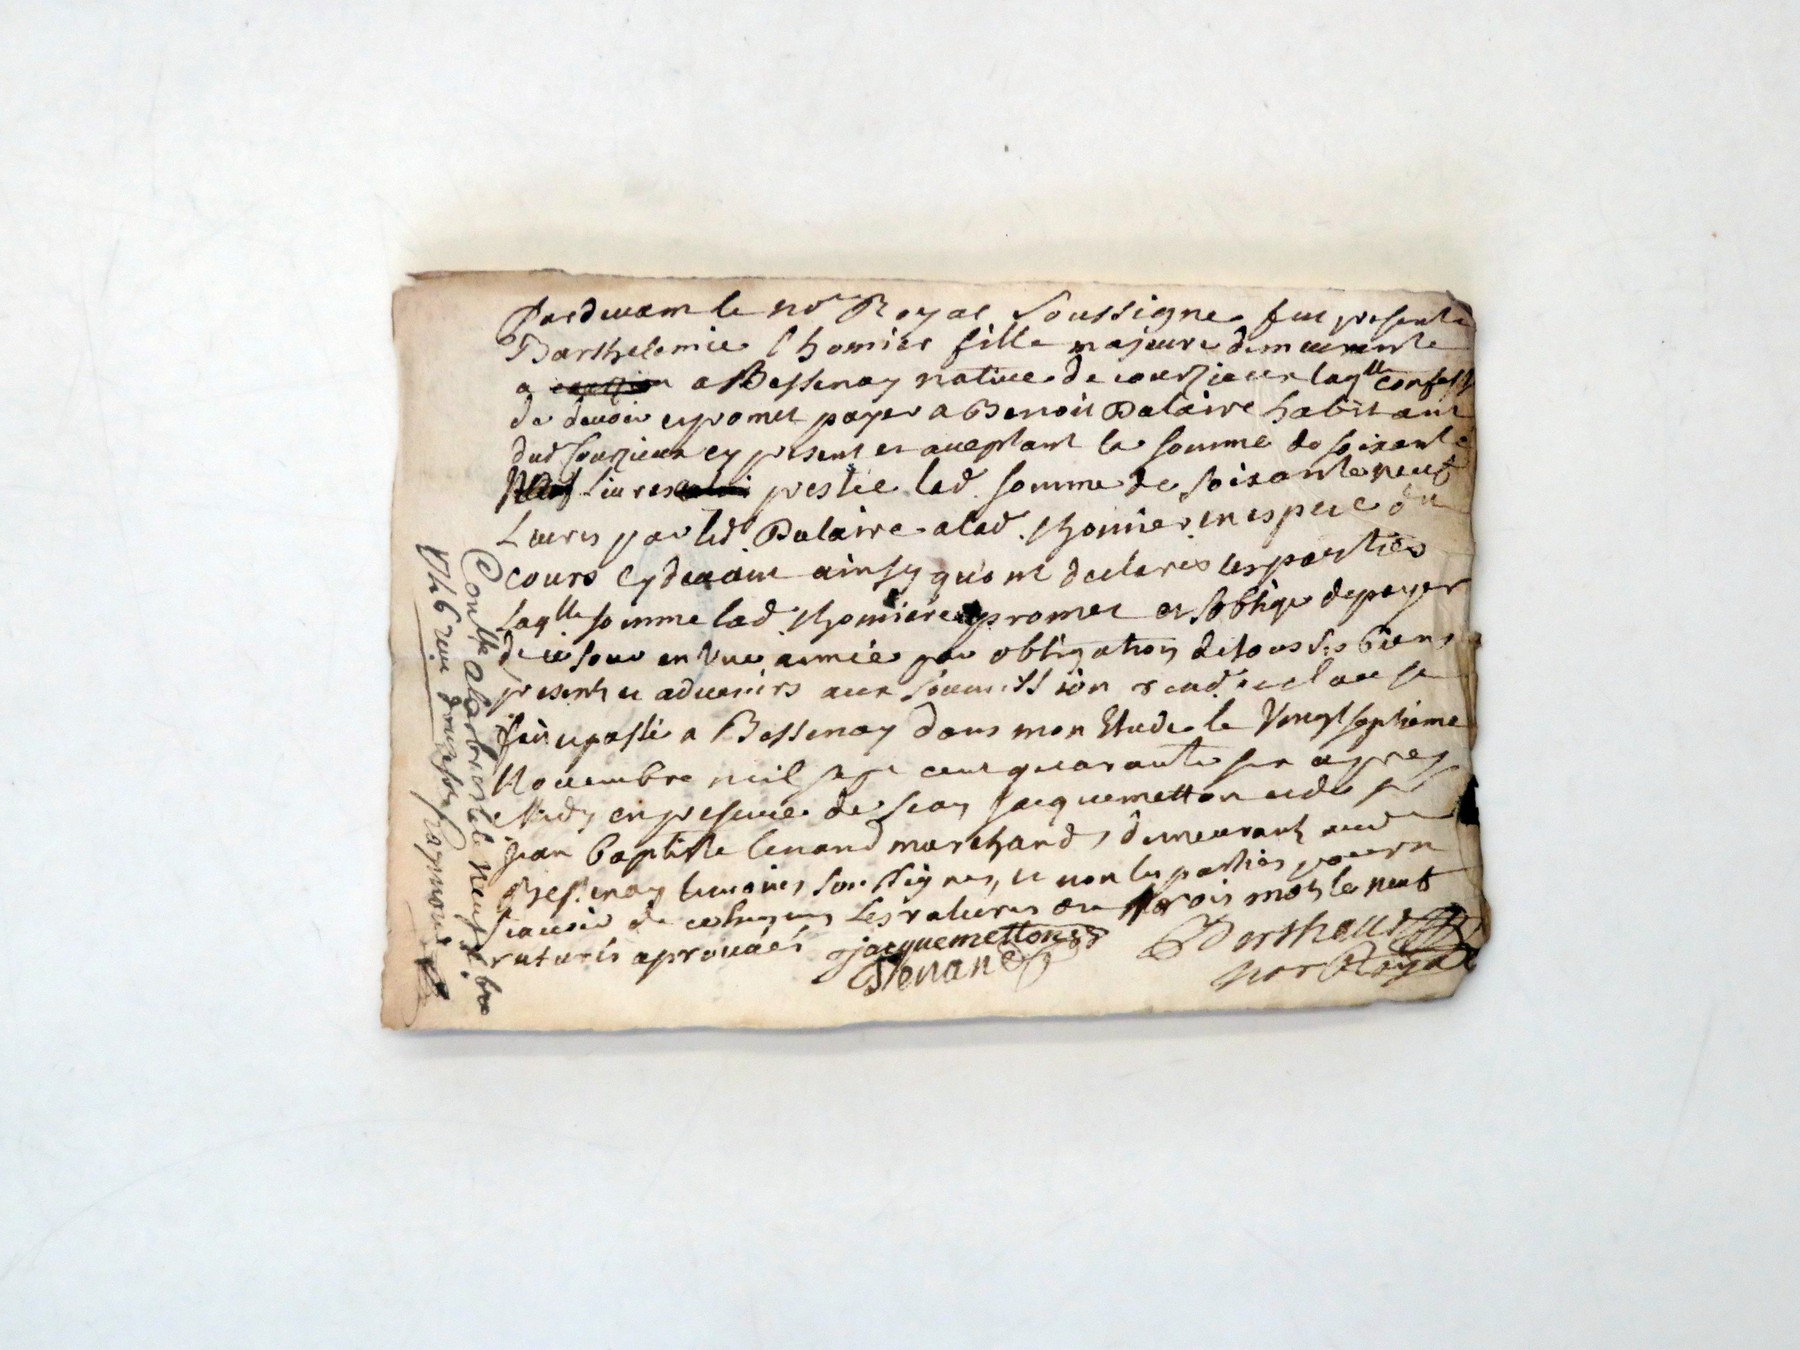 Pardevant le no.re Royal Soussigne fut presente
Barthelemie Thomier fille majeure demeurante
a a Bessenay native de courzieux laqlle confesse
de devoir et promet payer a Benoit Dalaire habitant
dud Courzieux cy present et aceptant la somme de soixante
livres prestée lad. somme de soixante neuf
Livres par led. Dalaire a lad. thomier en espece du
cours cy devant ainsy qu'ont declarés les parties
Laqlle somme lad. thomiere promet et s'oblige de payer
de ce jour en une année par obligation de tous ses biens
presents et advenirs aux soumission et clause
fait et passé a Bessenay dans mon Etude le Vingt septieme
Novembre mil sept cent quarante six apres
Midy en presence de Jean Jacquemetton et de sr
Jean baptiste tenand marchand demeurant aud
Bessenay temoins soussignes, et non les parties pour ne
scavoir de ce les ratures ou trois mots le neuf
raturés aprouvées Jacquemetton
tenand Berthaud
no.re Royal
Con.lle a larbresle le neuf x.bre
1746 recu douze sols